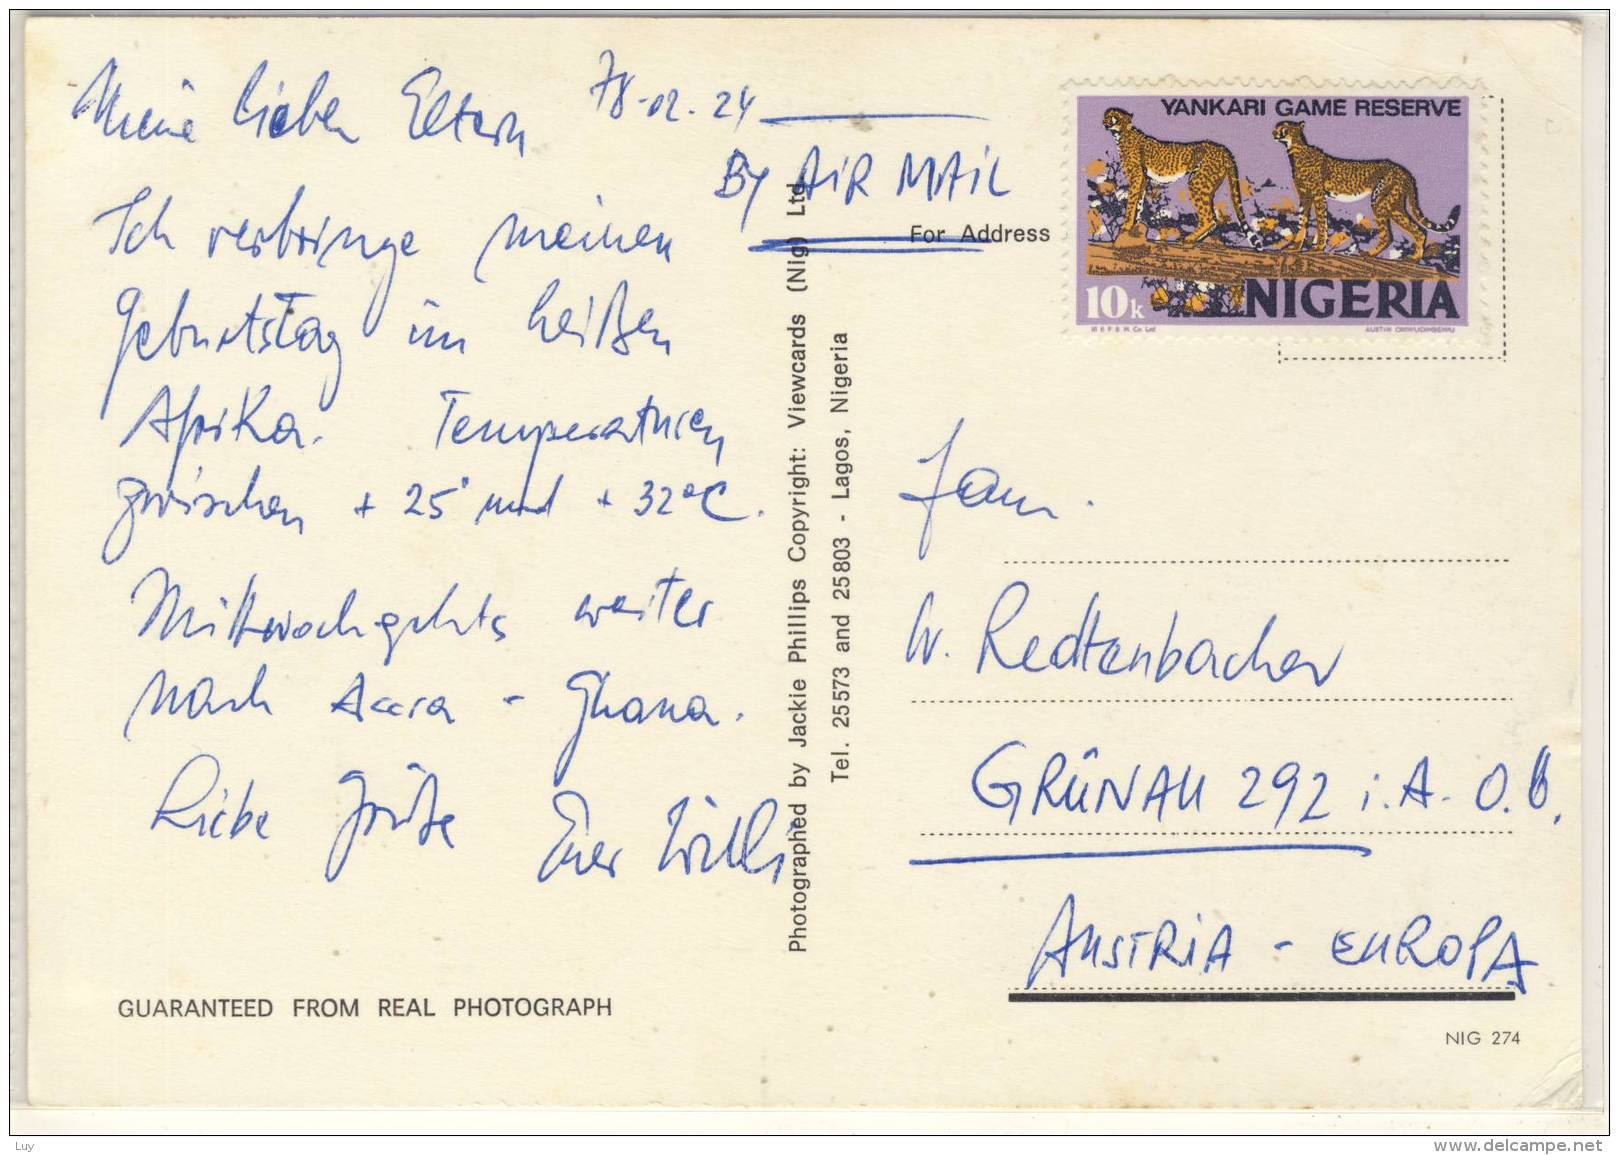 Meine lieben Eltern 78-02-24
BY AIR MAIL
Ich verbringe meinen
Geburtstag im heißen
Afrika. Temperaturen
zwischen + 25° und + 32°C.
Mittwoch gehts weiter
nach Accra - Ghana.
Liebe Grüße Euer Willi
GUARANTEED FROM REAL PHOTOGRAPH
Photographed by Jackie Phillips Copyright: Viewcards (Nig) Ltd
Tel. 25573 and 25803 - Lagos, Nigeria
For Address
YANKARI GAME RESERVE
10k NIGERIA
Fam.
W. Redtenbacher
GRÜNAU 292 i. A. O.Ö.
AUSTRIA - EUROPA
NIG 274
Luy
www.delcampe.net